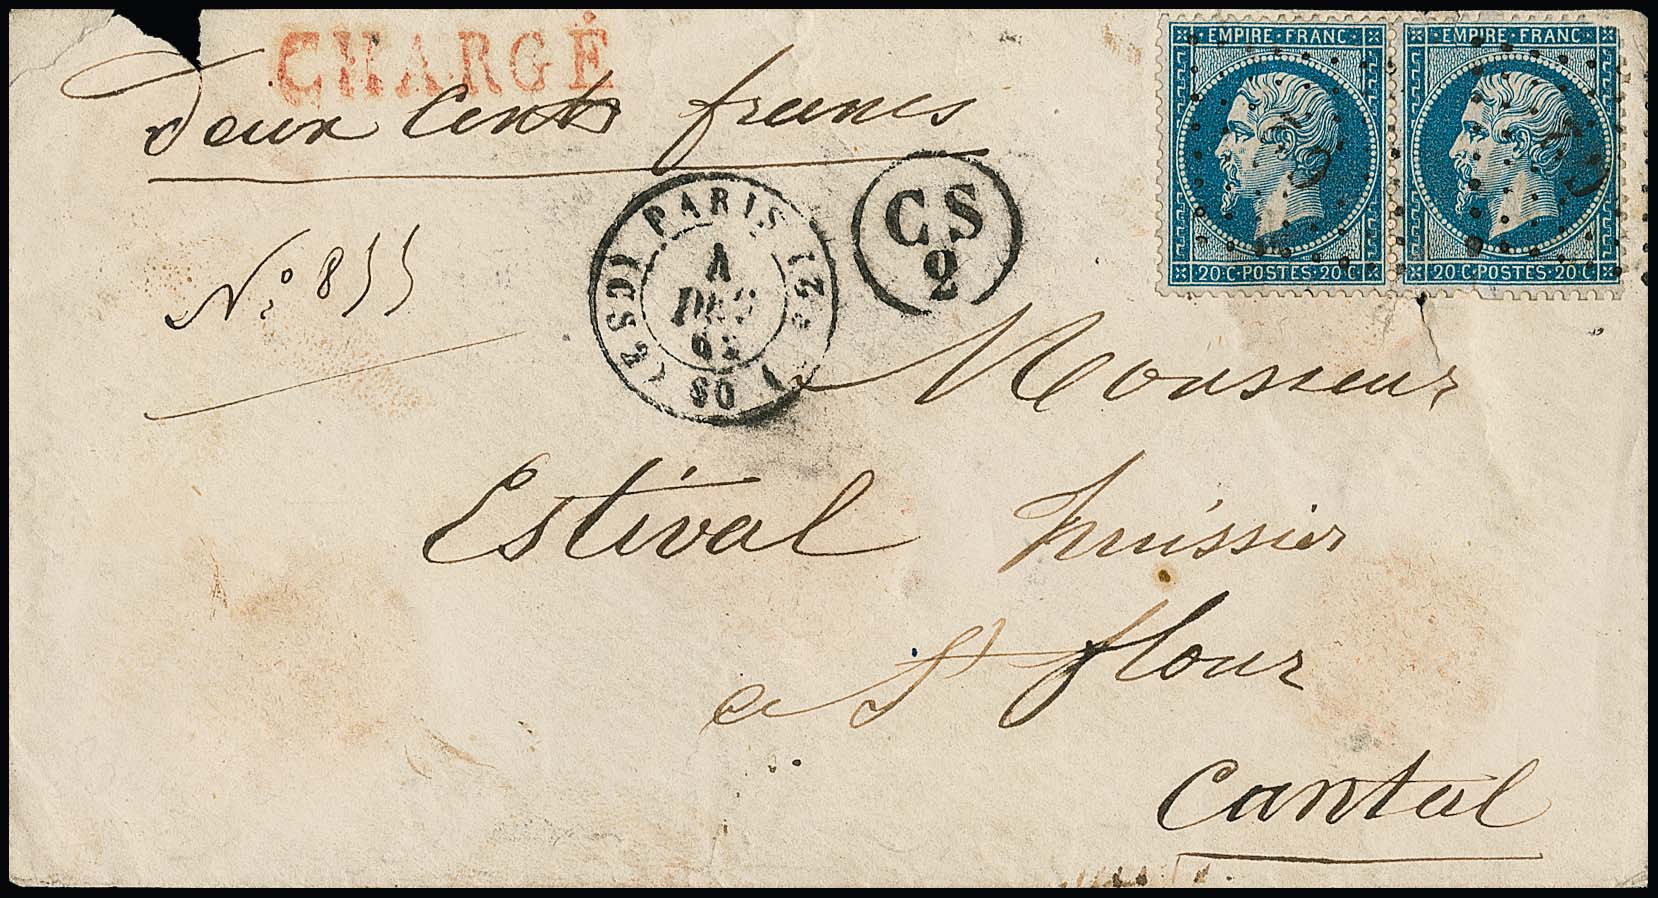 CHARGÉ
Deux Cents francs
EMPIRE·FRANC·
EMPIRE·FRANC·
20·C·POSTES·20·C
20·C·POSTES·20·C
CS
2
PARIS
A
DEC
60
N° 855
Monsieur
Estival huissier
a St flour
Cantal